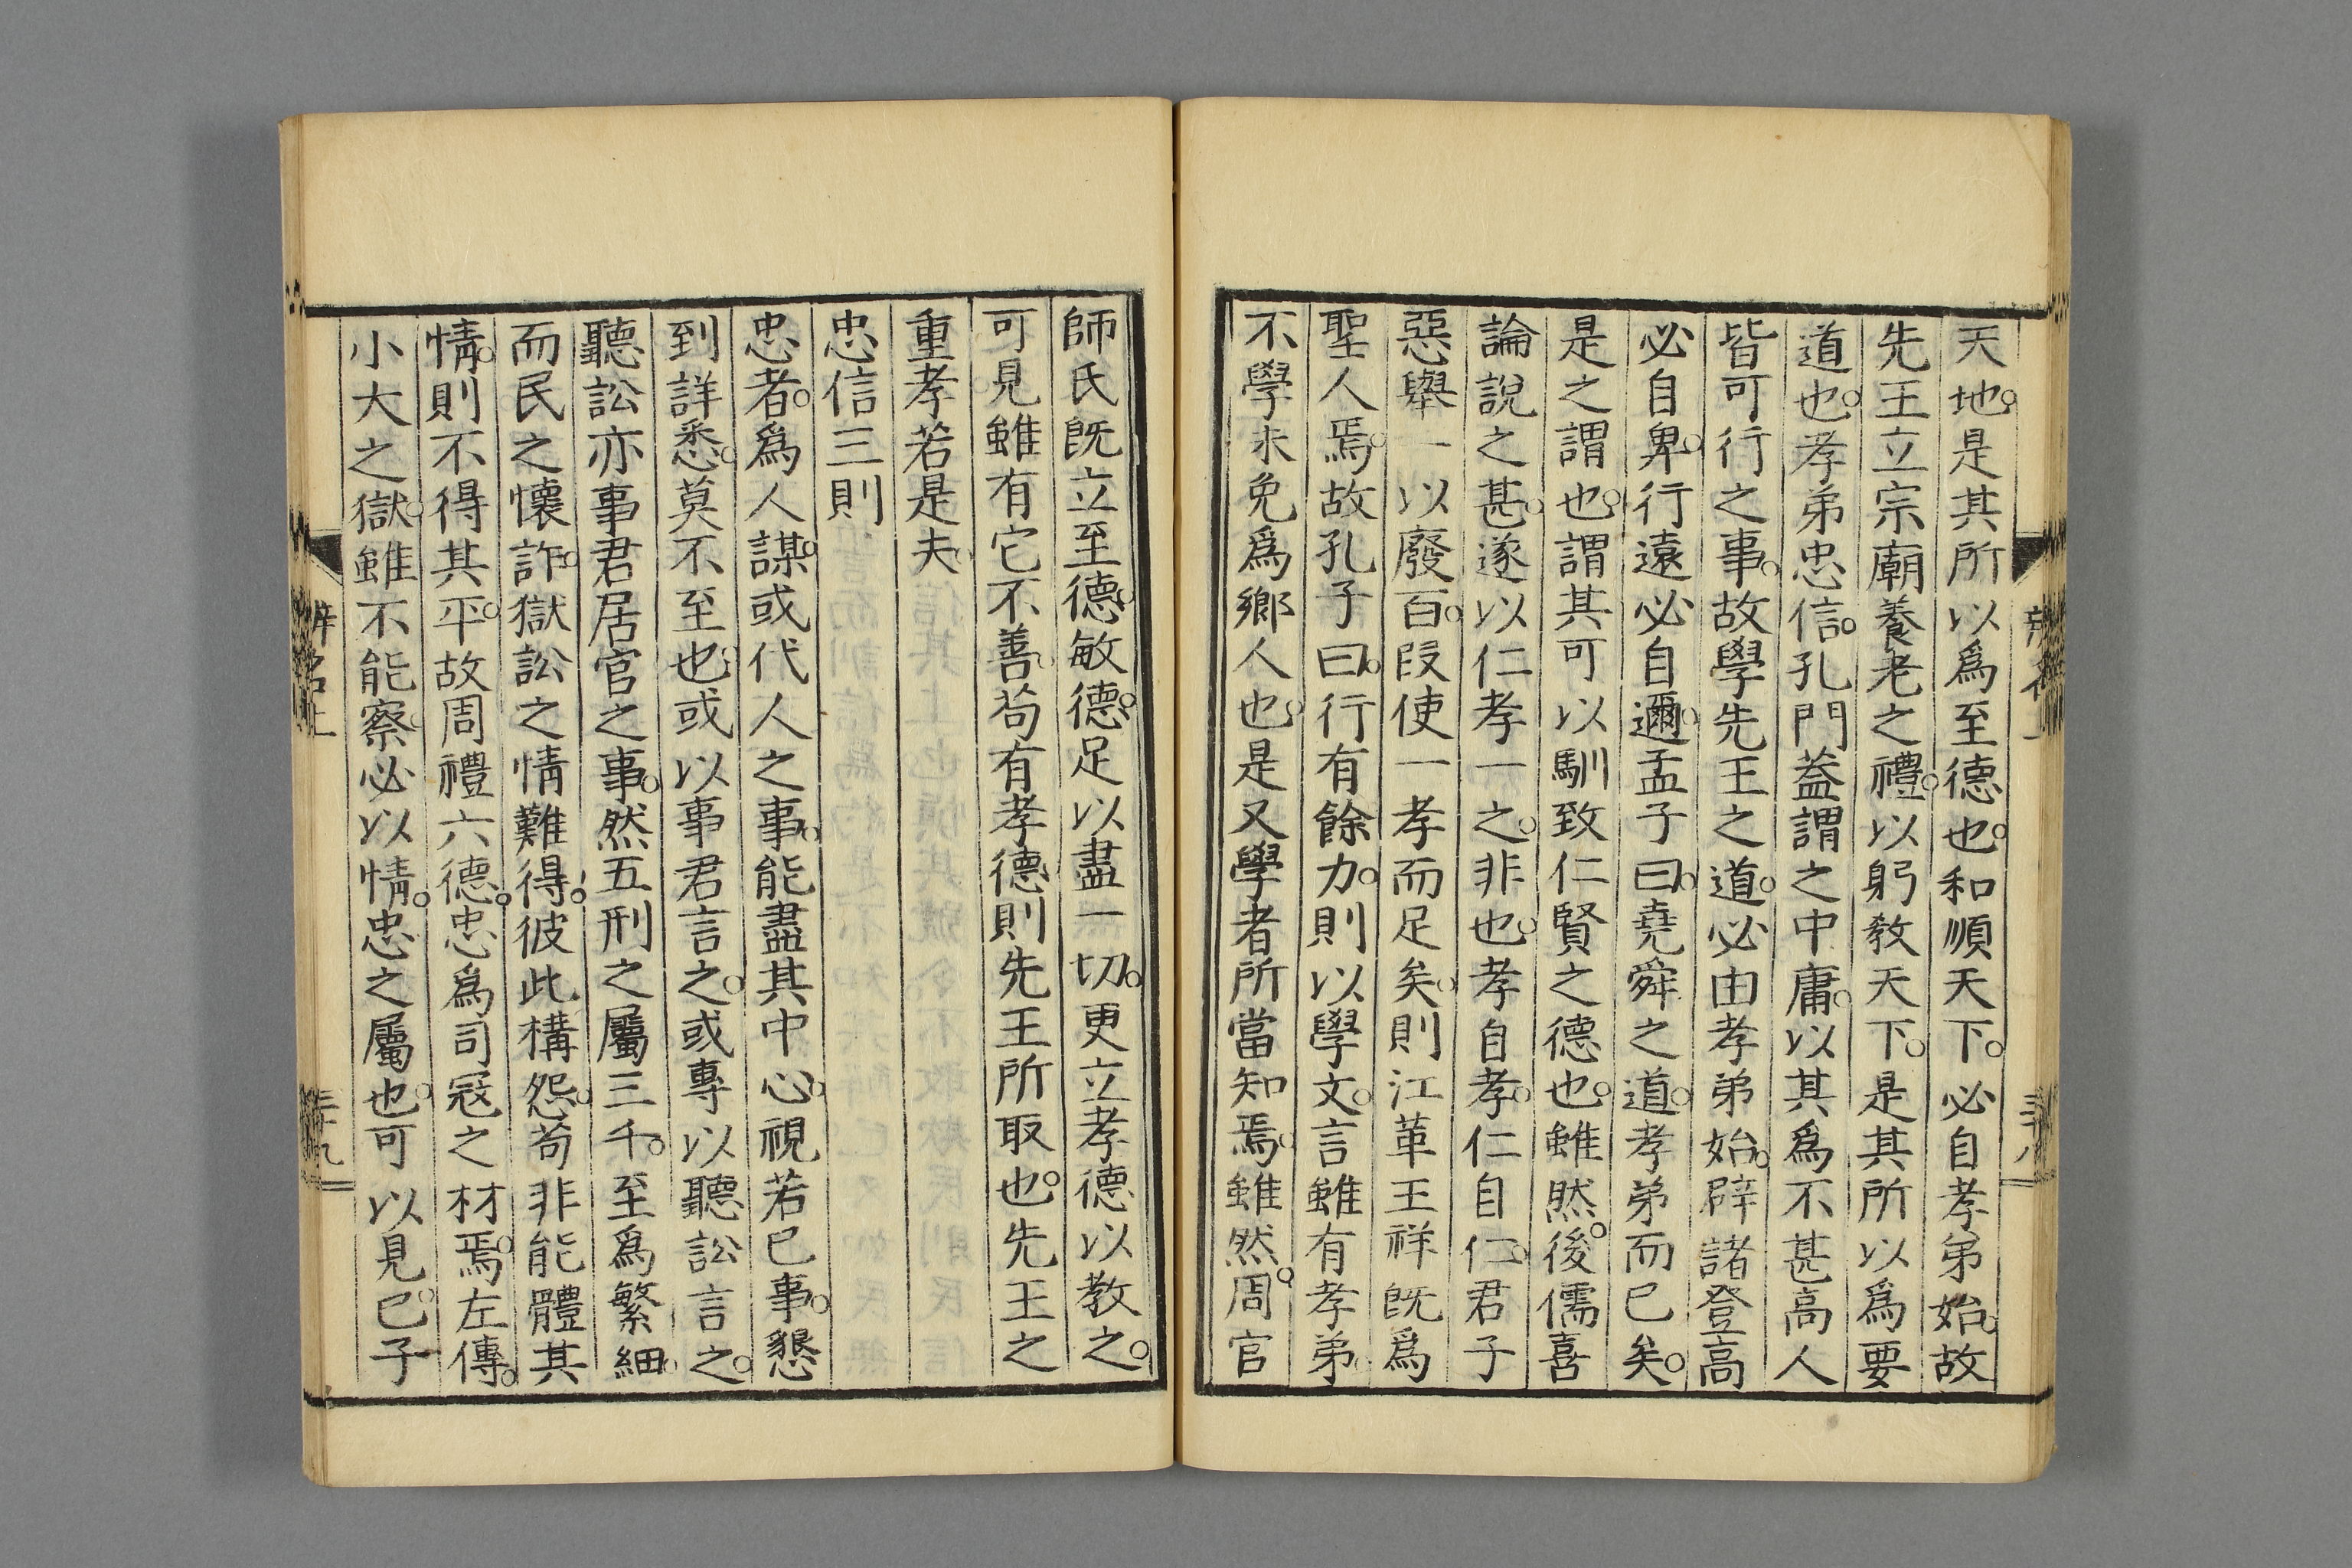 天地。是其所以爲至德也。和順天下。必自孝弟始。故
先王立宗廟養老之禮。以躬教天下。是其所以爲要
道也。孝弟忠信。孔門蓋謂之中庸。以其爲不甚高人
皆可行之事。故學先王之道。必由孝弟始。辟諸登高
必自卑。行遠必自邇。孟子曰。堯舜之道。孝弟而已矣。
是之謂也。謂其可以馴致仁賢之德也。雖然。後儒喜
論說之甚。遂以仁孝一之。非也。孝自孝。仁自仁。君子
惡舉一以廢百。叚使一孝而足矣。則江革王祥既爲
聖人焉。故孔子曰。行有餘力。則以學文。言雖有孝弟。
不學未免爲鄉人也。是又學者所當知焉。雖然。周官
師氏既立至德。敏德。足以盡一切。更立孝德以教之。
可見雖有它不善。苟有孝德。則先王所取也。先王之
重孝若是夫。
忠信三則
忠者。爲人謀。或代人之事。能盡其中心。視若已事。懇
到詳悉。莫不至也。或以事君言之。或專以聽訟言之。
聽訟亦事君居官之事。然五刑之屬三千。至爲繁細。
而民之懷詐。獄訟之情難得。彼此構怨。苟非能體其
情。則不得其平。故周禮六德。忠爲司寇之材焉。左傳。
小大之獄。雖不能察。必以情。忠之屬也。可以見已。子
辨名上
三十九